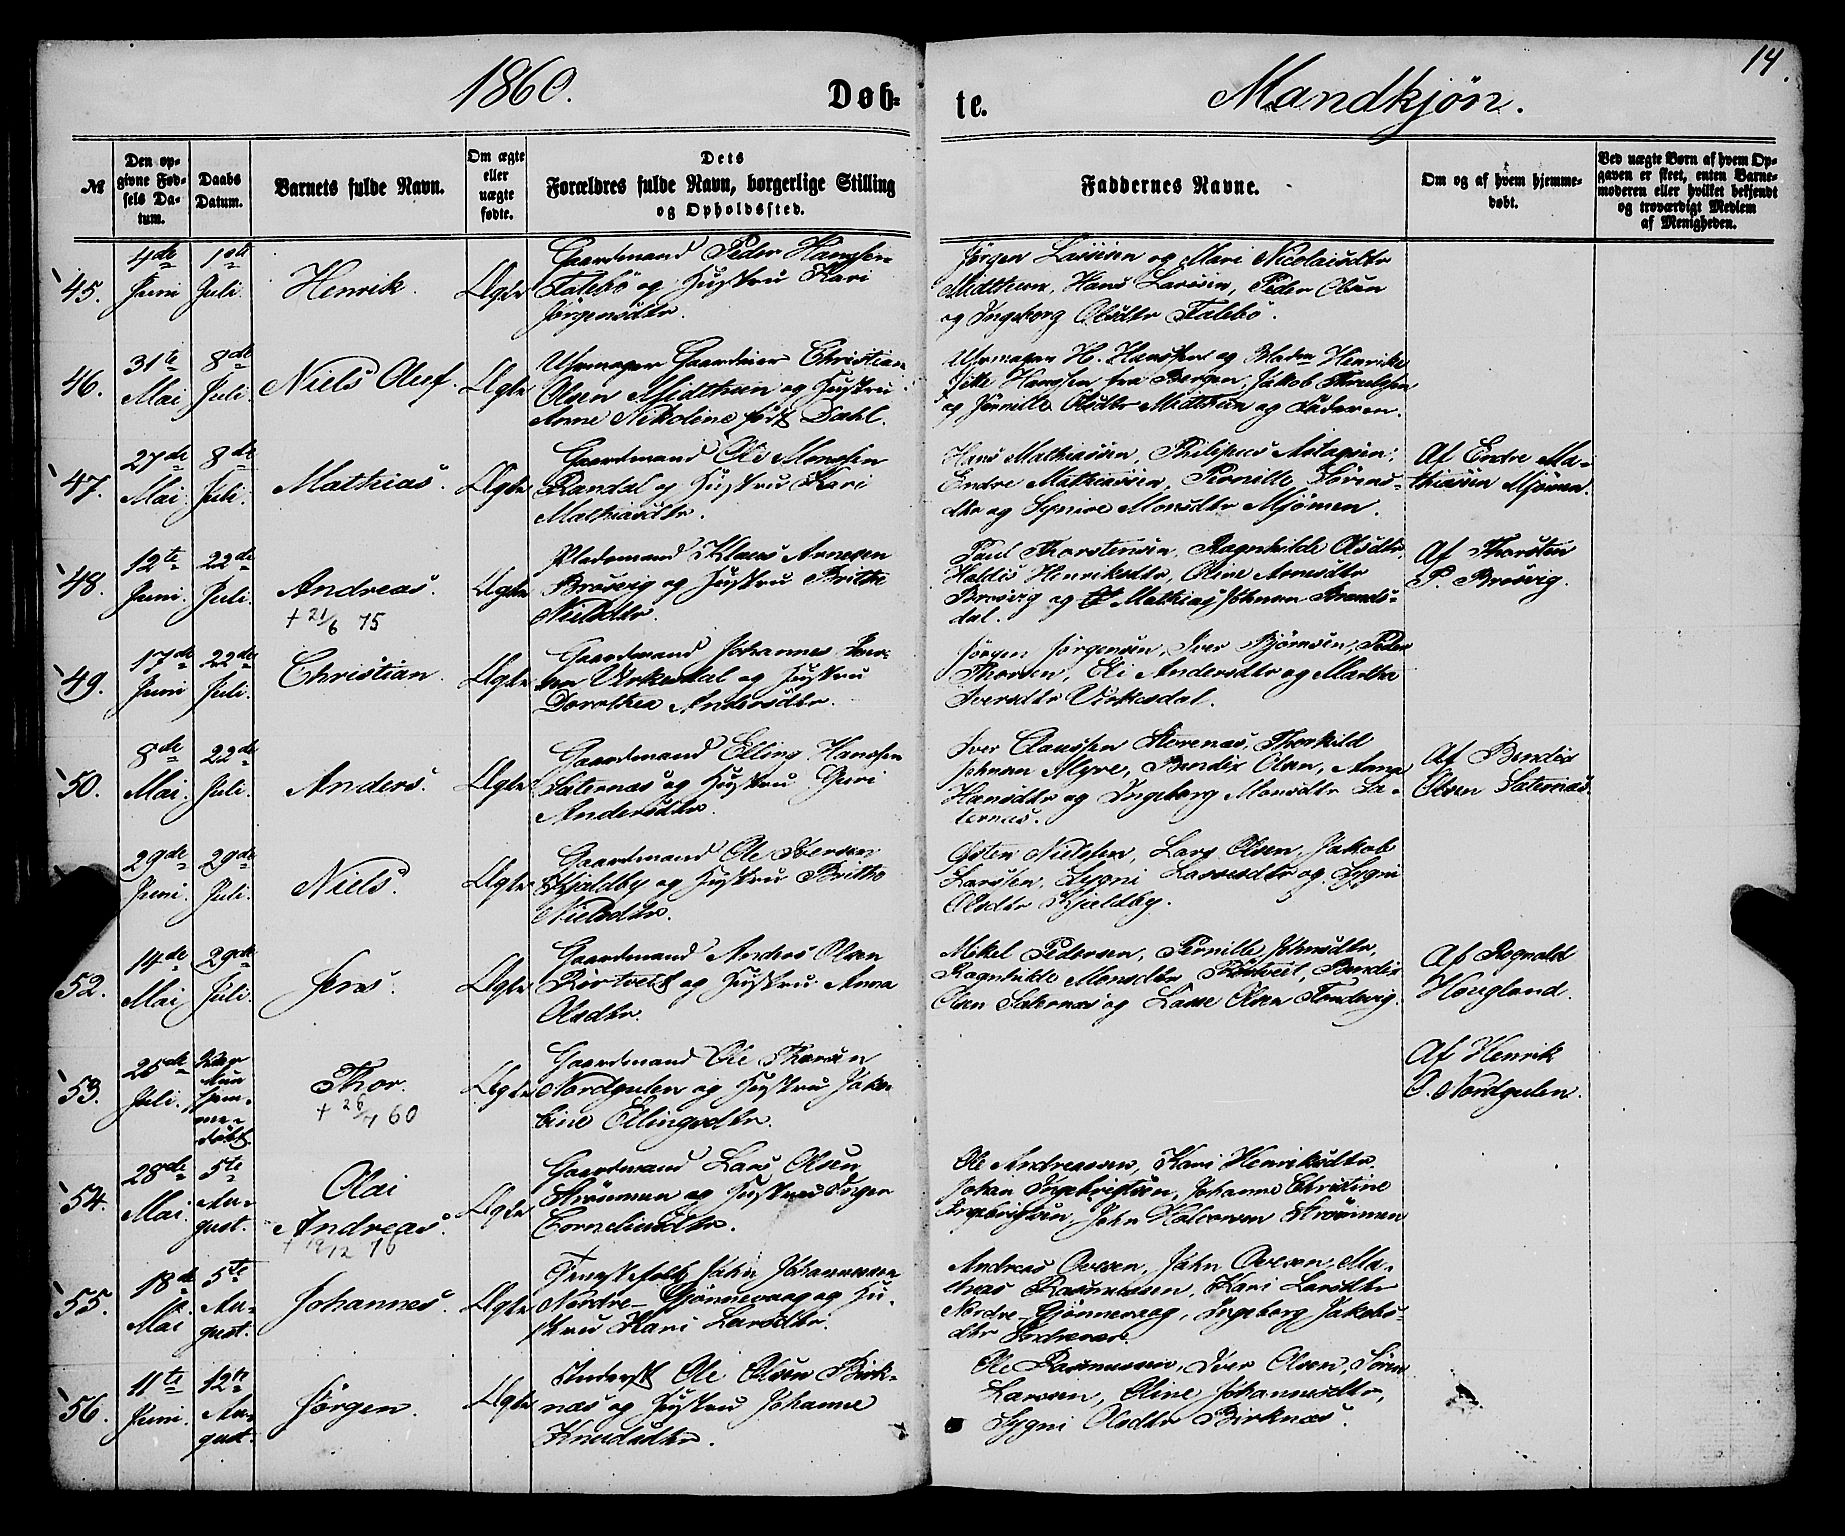 1860.
Døb-
te.
Mandkjøn.
14.
№
Den op-
givne Fød-
sels Da-
tum.
Daabs
Datum.
Barnets fulde Navn.
Om ægte
eller
uægte
fødte.
Dets
Forældres fulde Navn, borgerlige Stilling
og Opholdssted.
Faddernes Navne.
Om og af hvem hjemme-
døbt.
Ved uægte Børn af hvem Op-
gaven er skeet, enten Barne-
moderen eller hvilket bekjendt
og troværdigt Medlem
af Menigheden.
45.
4de
Juni
1ste
Juli.
Henrik.
Ægte
Gaardmand Peder Hanssen
Talebø og Hustru Kari
Jørgensdtr.
Jørgen Lassen og Mari Nicolaisdtr
Midthun, Hans Larsen, Peder Olsen
og Ingeborg Olsdtr Talebø.
46.
31te
Mai
8de
Juli.
Niels Oluf.
Ægte
Uhrmager Gaardeier Christian
Olsen Midthun og Hustru
Anne Nikoline født Dahl.
Uhrmager H. Hanssen og Madm Henrike
Hanssen fra Bergen, Jakob
og Pernille Olsdtr Midthun og Faderen.
47.
27de
Mai.
8de
Juli.
Mathias.
Ægte
Gaardmand Ole Monssen
Randal og Hustru Kari
Mathiasdtr.
Hans Mathiassen, Philipus
Endre Mathiassen, Pernille Sørens-
dtr og Synive Monsdtr Mjömen.
Af Endre Ma-
thiassen Mjömen.
48.
12te
Juni.
22de
Juli.
Andreas.
+ 21/6 75
Ægte
Pladsmand Klaus Annesen
Brosvig og Hustru Brithe
Nielsdtr.
Paul Thorstensen, Ragnhilde Olsdtr,
Haldis Henriksdtr, Oline Arnesdtr
Brosvig og Mathias Johnsen Brands-
dal.
Af Thorsten
P. Brosvig.
49.
17de
Juni
22de
Juli.
Christian.
Ægte
Gaardmand Johannes Iver-
sen Virkesdal og Hustru
Dorothea Andersdtr.
Jørgen Jørgensen, Iver Bjørnsen, Peder
Thorsen, Eli Andersdtr og Martha
Iversdtr Virkesdal.
50.
8de
Mai.
22de
Juli.
Anders.
Ægte
Gaardmand Elling Hanssen
Saternæs og Hustru Guri
Andersdtr.
Iver Claussen Storenæs, Thorkild
Johnsen Myre, Bendix Olsen, Anna
Hansdtr og Ingeborg Monsdtr Sa-
ternæs.
Af Bendix
Olsen Saternæs.
29de
Juni.
29de
Juli.
Niels.
Ægte
Gaardmand Ole Iversen
Kjeldby og Hustru Brithe
Nielsdtr.
Østen Nielssen, Lars Olsen, Jakob
Larssen, Sygni Lassesdtr og Sygni
Olsdtr Kjeldby.
52.
14de
Mai
29de
Juli.
Jens.
Ægte
Gaardmand Anders Olsen
Rørtvedt og Hustru Anna
Olsdtr.
Mikel Pedersen, Pernille Johnsdtr,
Ragnhilde Monsdtr Rørtvedt, Bendix
Olsen Saternæs og Lasse Olsen Standevig.
Af Rognald
Hougland.
53.
25de
Juli.
Kun
hjem-
me-
døbt.
Thor.
+ 26/7 60
Ægte
Gaardmand Ole Thorsen
Nordgulen og Hustru Jako-
bine Ellingsdtr.
Af Henrik
O. Nordgulen.
54.
28de
Mai.
5te
Au-
gust.
Olai
Andreas.
+ 19/12 76
Ægte
Gaardmand Lars Olsen
Strömmen og Hustru Inger
Corneliusdtr.
Ole Andreassen, Kari Henriksdtr,
Johan Ingebrigtsen, Johanne Christine
Ingebrigtsen, John Halvorsen Strömmen
55.
18de
Mai
5te
Au-
gust.
Johannes.
Ægte
John Johannessen
Nordre-Gjønnevaag og Hu-
stru Kari Larsdtr.
Andreas Olsen, John Olsen, Ma-
thias Rasmussen, Kari Larsdtr
Nordre-Gjønnevaag, Ingeborg Jakobs-
dtr
56.
11te
Juni.
12te
Au-
gust.
Jørgen.
Ægte
Inderst Ole Olsen Birk-
næs og Hustru Johanne
Knudsdtr.
Ole Rasmussen, Iver Olsen, Søren
Larssen, Oline Johannesdtr,
Sygni Olsdtr Birknæs.